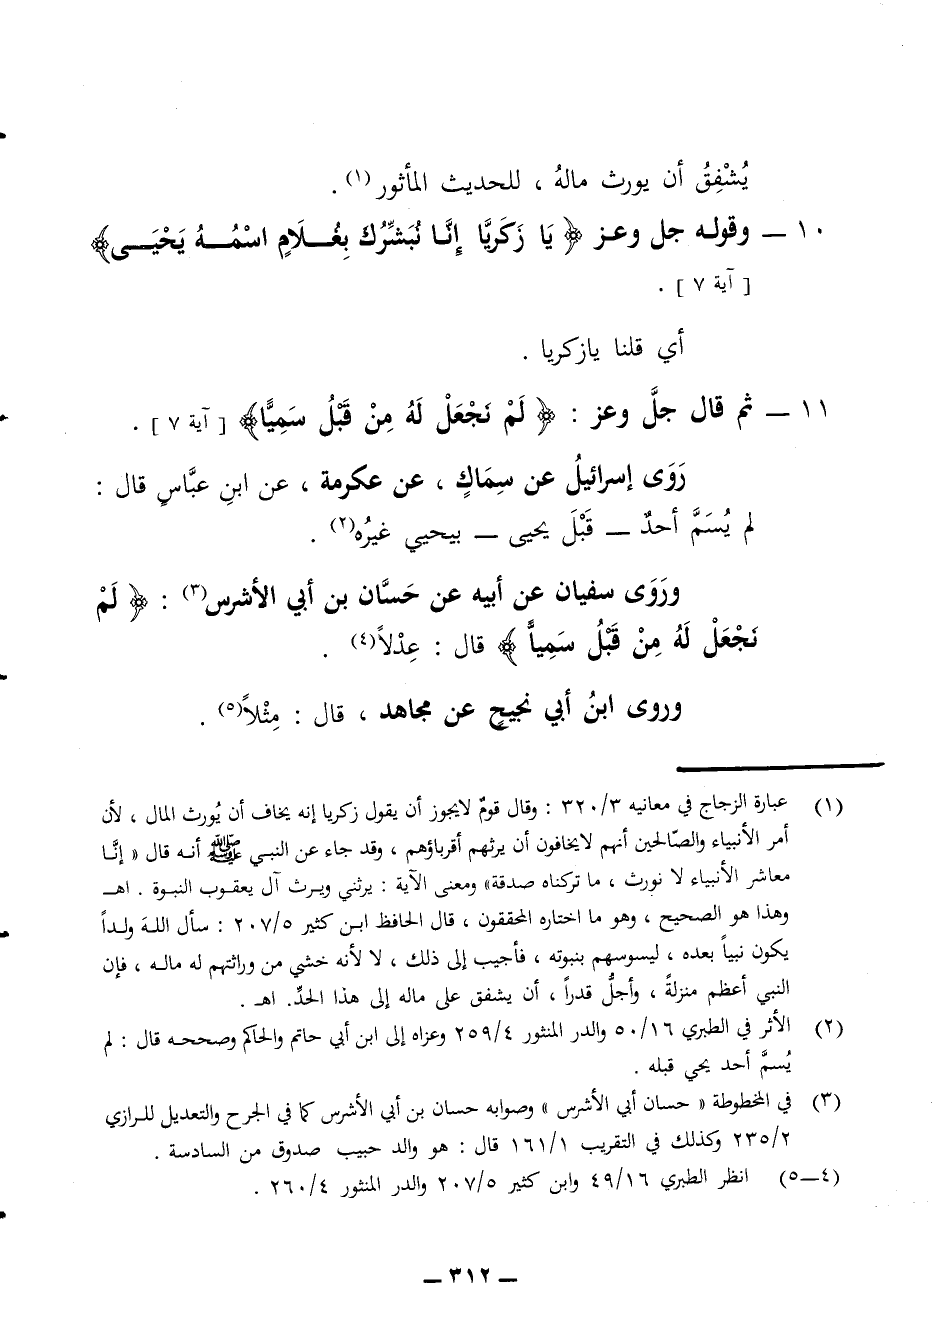 يُشْفِقُ أن يورث مالهُ ، للحديث المأثور (١) .
١٠ ــ وقوله جل وعز ﴿ يَا زَكَرِيَّا إِنَّا نُبَشِّرُكَ بِغُـــلَامٍ اسْمُـــهُ يَحْيَـــى﴾
[ آية ٧ ] .
أي قلنا يازكريا .
١١ ــ ثم قال جلَّ وعز : ﴿ لَمْ نَجْعَلْ لَهُ مِنْ قَبْلُ سَمِيًّا﴾ [ آية ٧ ] .
رَوَى إسرائيلُ عن سِمَاكٍ ، عن عكرمة ، عن ابنِ عبَّاسٍ قال :
لم يُسَمَّ أحدٌ ــ قَبْلَ يحيى ــ بيحيي غيرُه(٢) .
ورَوَى سفيان عن أبيه عن حَسَّان بن أبي الأشرس(٣) : ﴿ لَمْ
نَجْعَلْ لَهُ مِنْ قَبْلُ سَمِياًّ ﴾ قال : عِدْلاً(٤) .
وروى ابنُ أبي نجيحٍ عن مجاهد ، قال : مِثْلاً(٥) .
(١) عبارة الزجاج في معانيه ٣٢٠/٣ : وقال قومٌ لايجوز أن يقول زكريا إنه يخاف أن يُورث المال ، لأن
أمر الأنبياء والصّالحين أنهم لايخافون أن يرثهم أقرباؤهم ، وقد جاء عن النبي ﷺ أنـه قال « إنَّـا
معاشر الأنبياء لا نورث ، ما تركناه صدقة» ومعنى الآية : يرثني ويـرث آل يعقـوب النبـوة . اهـ
وهذا هو الصحيح ، وهو ما اختاره المحققون ، قال الحافظ ابـن كثير ٢٠٧/٥ : سأل اللـهَ ولـداً
يكون نبياً بعده ، ليسوسهم بنبوته ، فأجيب إلى ذلك ، لا لأنه خشي من وراثتهم له مالـه ، فإن
النبي أعظم منزلةً ، وأجلُّ قدراً ، أن يشفق على ماله إلى هذا الحدِّ. اهـ .
(٢) الأثر في الطبري ٥٠/١٦ والدر المنثور ٢٥٩/٤ وعزاه إلى ابن أبي حاتم والحاكم وصححـه قال : لم
يُسمَّ أحد يحي قبله .
(٣) في المخطوطة « حسان أبي الأشرس » وصوابه حسان بن أبي الأشرس كما في الجرح والتعديل للـرازي
٢٣٥/٢ وكذلك في التقريب ١٦١/١ قال : هو والد حبيب صدوق من السادسة .
(٤ــ٥) انظر الطبري ٤٩/١٦ وابن كثير ٢٠٧/٥ والدر المنثور ٢٦٠/٤ .
ــ ٣١٢ ــ